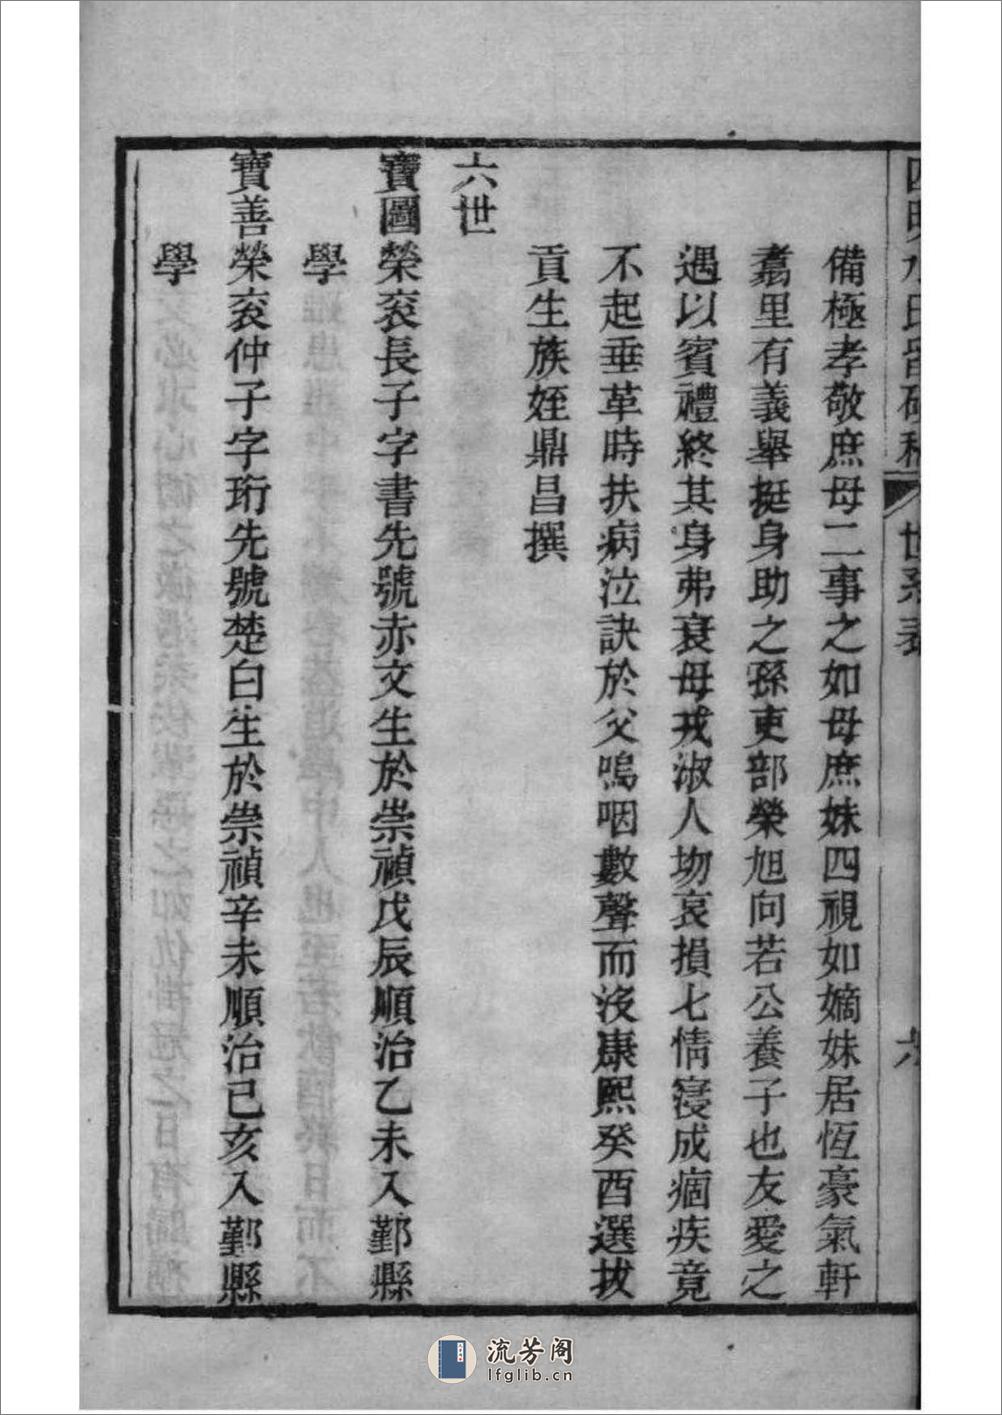 世系表
六
備極孝敬庶母二事之如母庶妹四視如嫡妹居恆豪氣軒
翥里有義舉挺身助之孫吏部榮旭向若公養子也友愛之
遇以賓禮終其身弗衰母戎淑人歿哀損七情寖成痼疾竟
不起垂革時扶病泣訣於父嗚咽數聲而沒康熙癸酉選拔
貢生族姪鼎昌撰
六世
寶圖榮袞長子字書先號赤文生於崇禎戊辰順治乙未入鄞縣
學
寶善榮袞仲子字珩先號楚白生於崇禎辛未順治己亥入鄞縣
學
流芳阁
lfglib.cn